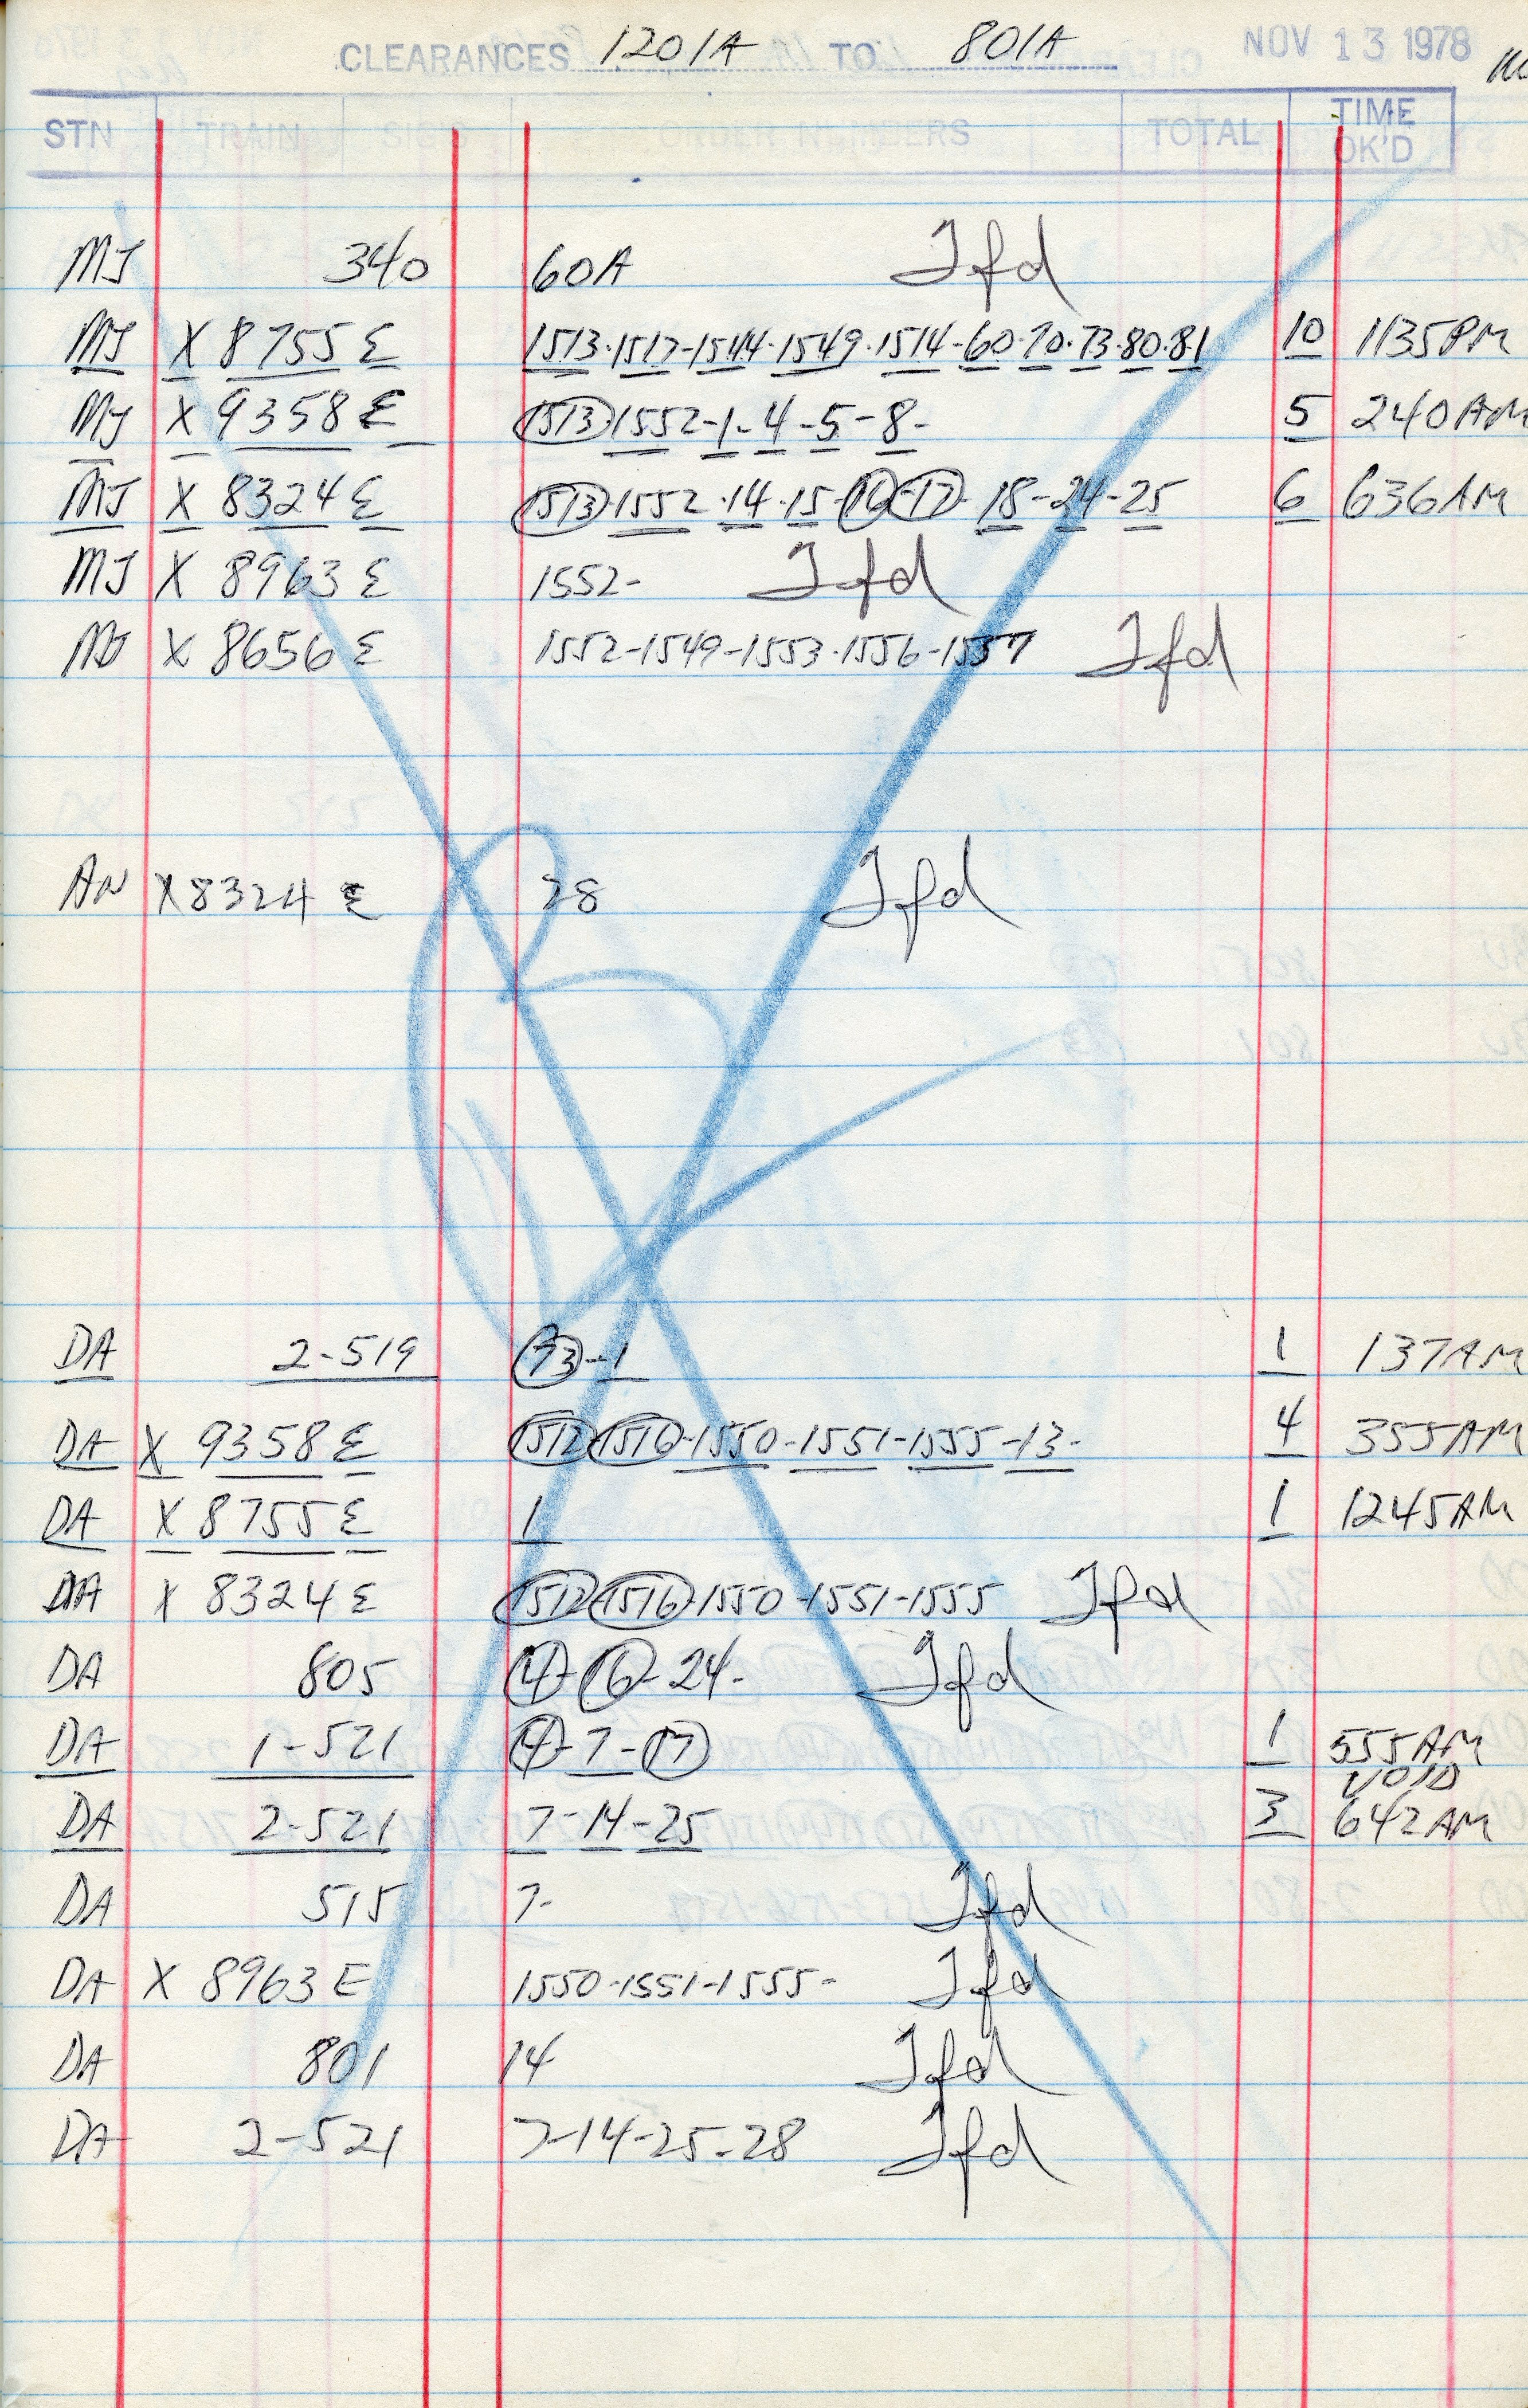 CLEARANCES 1201A TO 801A NOV 13 1978
STN TRAIN SIGS ORDER NUMBERS TOTAL TIME OK'D
MJ 340 60A Tfd
MJ X 8755 E 1513-1517-1544-1549-1514-60-70-73-80-81 10 1135PM
MJ X 9358 E 1513-1552-1-4-5-8- 5 240AM
MJ X 8324 E 1513-1552-14-15-16-17-18-24-25 6 636AM
MJ X 8963 E 1552- Tfd
MJ X 8656 E 1552-1549-1553-1556-1557 Tfd
AN X 8324 E 28 Tfd
DA 2-519 73-1 1 137AM
DA X 9358 E 1512-1516-1550-1551-1555-13- 4 355AM
DA X 8755 E 1 1 1245AM
DA X 8324 E 1512-1516-1550-1551-1555 Tfd
DA 805 4-16-24- Tfd
DA 1-521 4-7-17 1 555AM
VOID
DA 2-521 7-14-25 3 642AM
DA 515 7- Tfd
DA X 8963 E 1550-1551-1555- Tfd
DA 801 14 Tfd
DA 2-521 7-14-25-28 Tfd